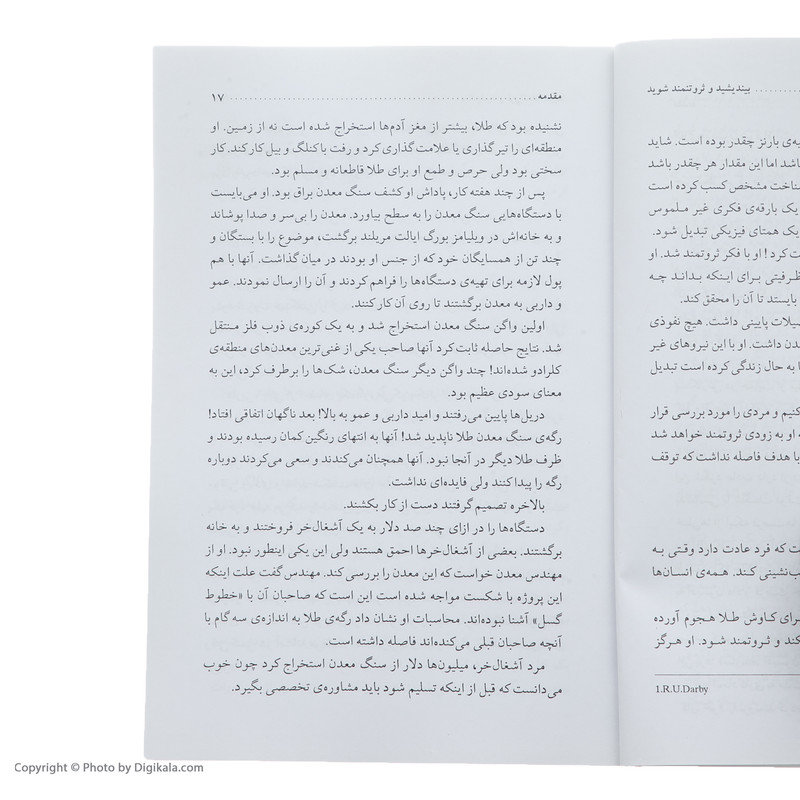 بیندیشید و ثروتمند شوید
یه‌ی بارنز چقدر بوده است. شاید
باشد اما این مقدار هر چقدر باشد
شناخت مشخص کسب کرده است
یک بارقه‌ی فکری غیر ملموس
یک همتای فیزیکی تبدیل شود.
ت کرد! او با فکر ثروتمند شد. او
ظرفیتی برای اینکه بداند چه
بایستد تا آن را محقق کند.
صیلات پایینی داشت. هیچ نفوذی
دن داشت. او با این نیروهای غیر
ا به حال زندگی کرده است تبدیل
کنیم و مردی را مورد بررسی قرار
ه او به زودی ثروتمند خواهد شد
با هدف فاصله نداشت که توقف
ت که فرد عادت دارد وقتی به
ب‌نشینی کند. همه‌ی انسان‌ها
رای کاوش طلا هجوم آورده
کند و ثروتمند شود. او هرگز
1.R.U.Darby
مقدمه ۱۷
نشنیده بود که طلا، بیشتر از مغز آدم‌ها استخراج شده است نه از زمین. او
منطقه‌ای را تیر گذاری یا علامت گذاری کرد و رفت با کلنگ و بیل کار کند. کار
سختی بود ولی حرص و طمع او برای طلا قاطعانه و مسلم بود.
پس از چند هفته کار، پاداش او کشف سنگ معدن براق بود. او می‌بایست
با دستگاه‌هایی سنگ معدن را به سطح بیاورد. معدن را بی‌سر و صدا پوشاند
و به خانه‌اش در ویلیامز بورگ ایالت مریلند برگشت، موضوع را با بستگان و
چند تن از همسایگان خود که از جنس او بودند در میان گذاشت. آنها با هم
پول لازمه برای تهیه‌ی دستگاه‌ها را فراهم کردند و آن را ارسال نمودند. عمو
و داربی به معدن برگشتند تا روی آن کار کنند.
اولین واگن سنگ معدن استخراج شد و به یک کوره‌ی ذوب فلز منتقل
شد. نتایج حاصله ثابت کرد آنها صاحب یکی از غنی‌ترین معدن‌های منطقه‌ی
کلرادو شده‌اند! چند واگن دیگر سنگ معدن، شک‌ها را برطرف کرد، این به
معنای سودی عظیم بود.
دریل‌ها پایین می‌رفتند و امید داربی و عمو به بالا! بعد ناگهان اتفاقی افتاد!
رگه‌ی سنگ معدن طلا ناپدید شد! آنها به انتهای رنگین کمان رسیده بودند و
ظرف طلا دیگر در آنجا نبود. آنها همچنان می‌کندند و سعی می‌کردند دوباره
رگه را پیدا کنند ولی فایده‌ای نداشت.
بالاخره تصمیم گرفتند دست از کار بکشند.
دستگاه‌ها را در ازای چند صد دلار به یک آشغال‌خر فروختند و به خانه
برگشتند. بعضی از آشغال‌خرها احمق هستند ولی این یکی اینطور نبود. او از
مهندس معدن خواست که این معدن را بررسی کند. مهندس گفت علت اینکه
این پروژه با شکست مواجه شده است این است که صاحبان آن با «خطوط
گسل» آشنا نبوده‌اند. محاسبات او نشان داد رگه‌ی طلا به اندازه‌ی سه گام با
آنچه صاحبان قبلی می‌کنده‌اند فاصله داشته است.
مرد آشغال‌خر، میلیون‌ها دلار از سنگ معدن استخراج کرد چون خوب
می‌دانست که قبل از اینکه تسلیم شود باید مشاوره‌ی تخصصی بگیرد.
Copyright © Photo by Digikala.com